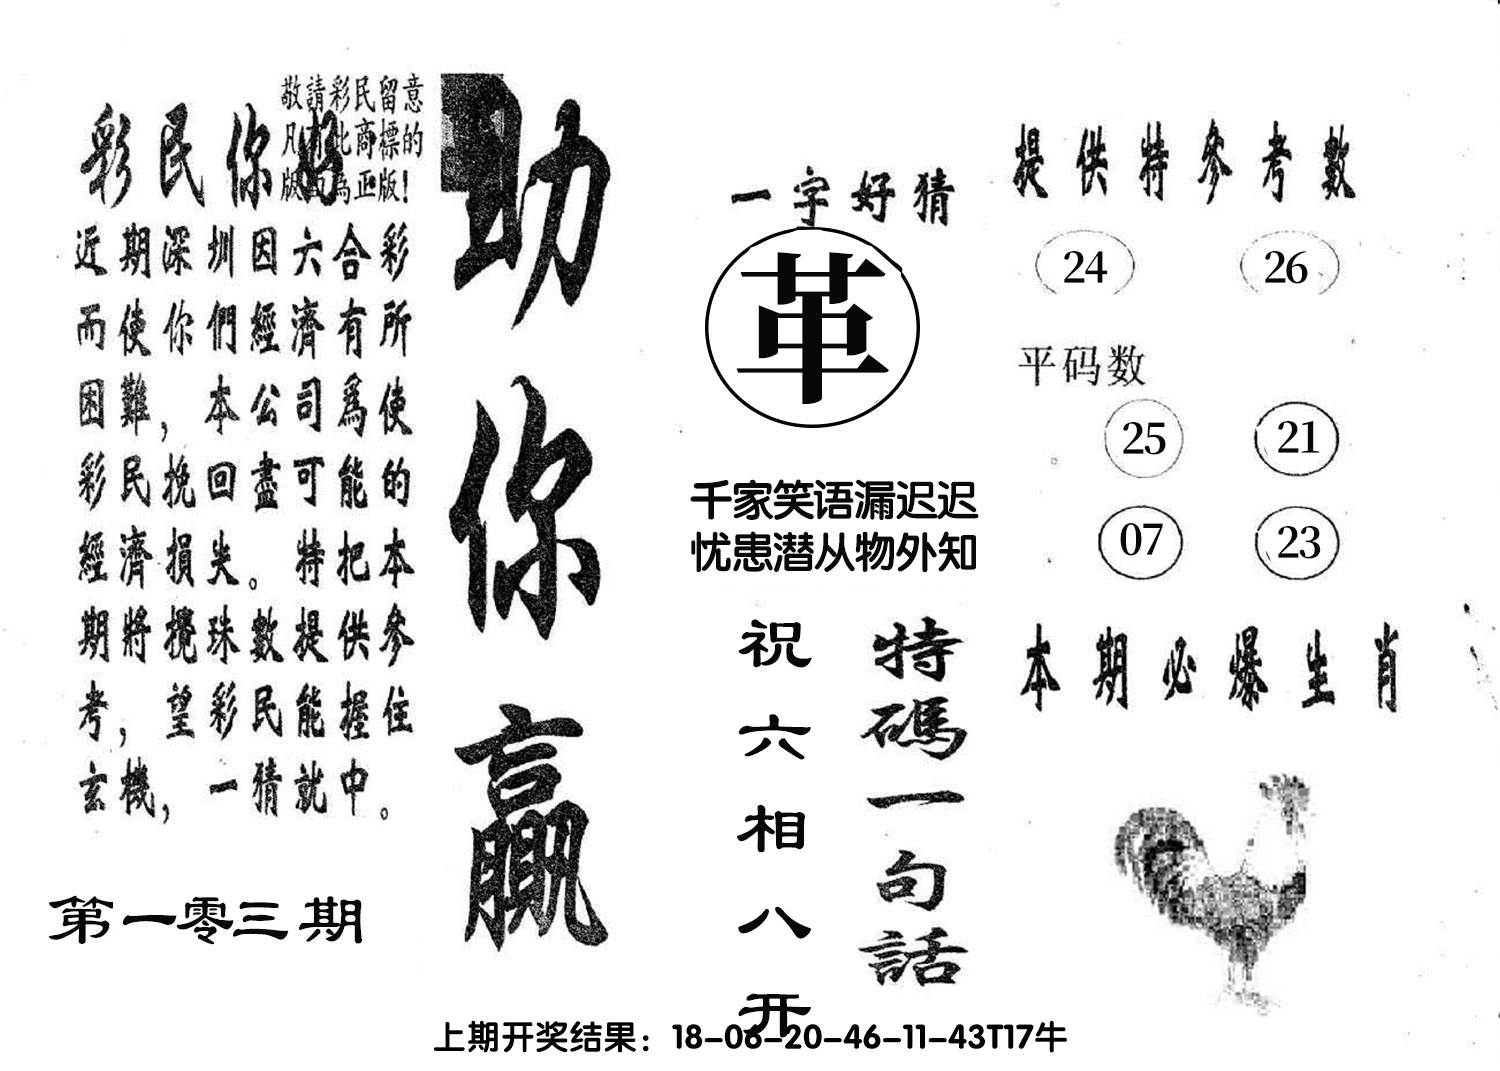 敬請彩民留意
凡有此商標的
版面為正版!
彩民你好
近期深圳因六合彩
而使你們經濟有所
困難，本公司爲使
彩民挽回盡可能的
經濟損失。特把本
期將攪珠數提供參
考，望彩民能握住
玄機，一猜就中。
第一零三期
助你贏
一字好猜
革
千家笑语漏迟迟
忧患潜从物外知
特碼一句話
祝六相八开
提供特參考數
24 26
平码数
25 21
07 23
本期必爆生肖
上期开奖结果：18-06-20-46-11-43T17牛